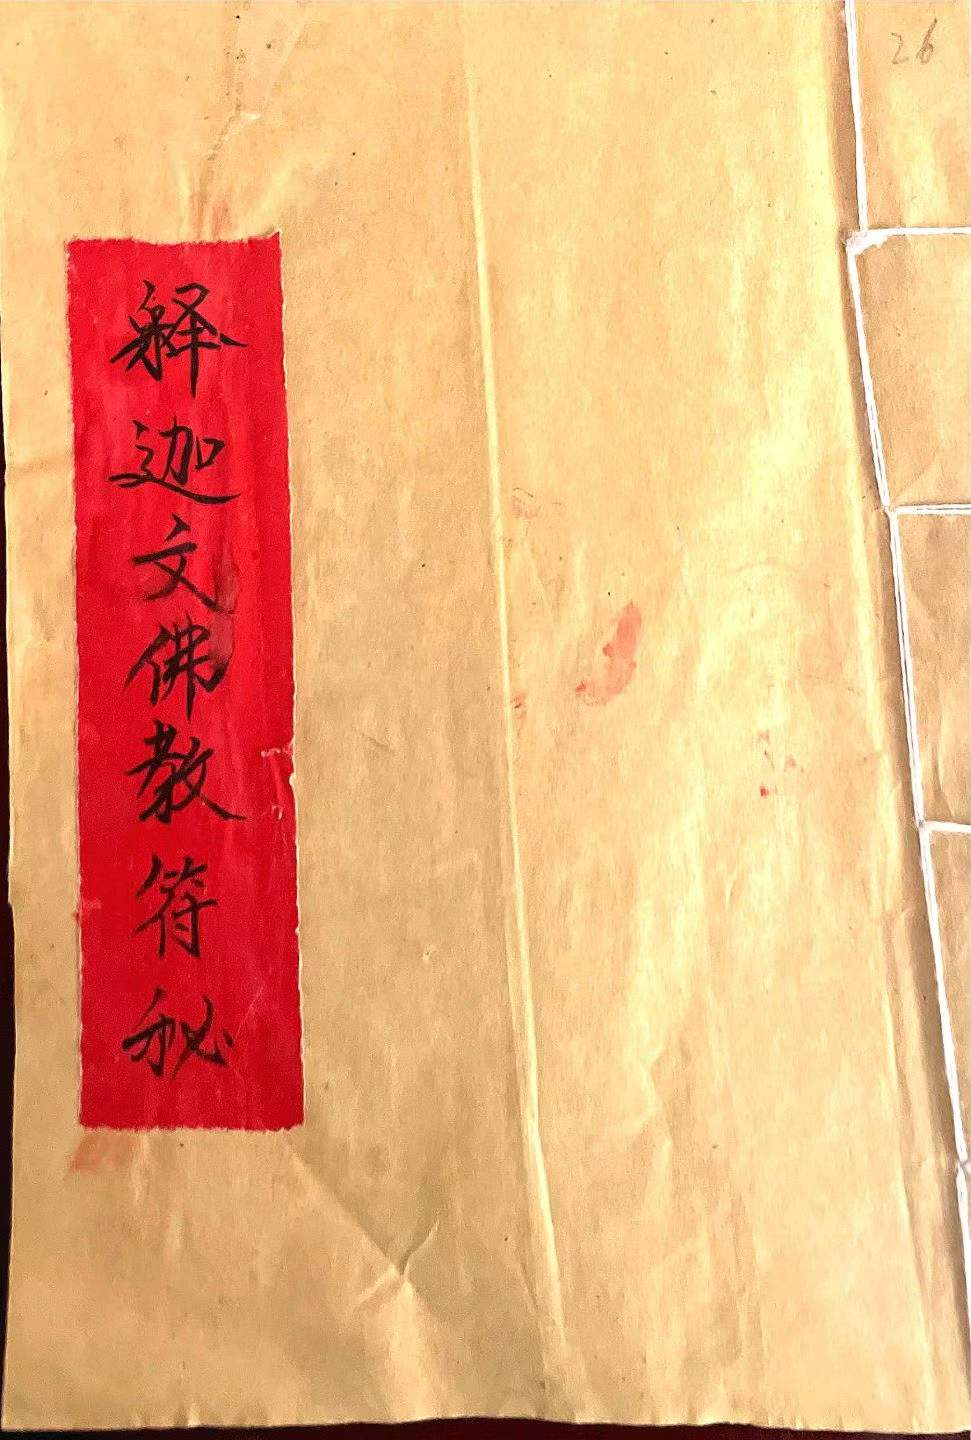 26
释迦文佛教符秘